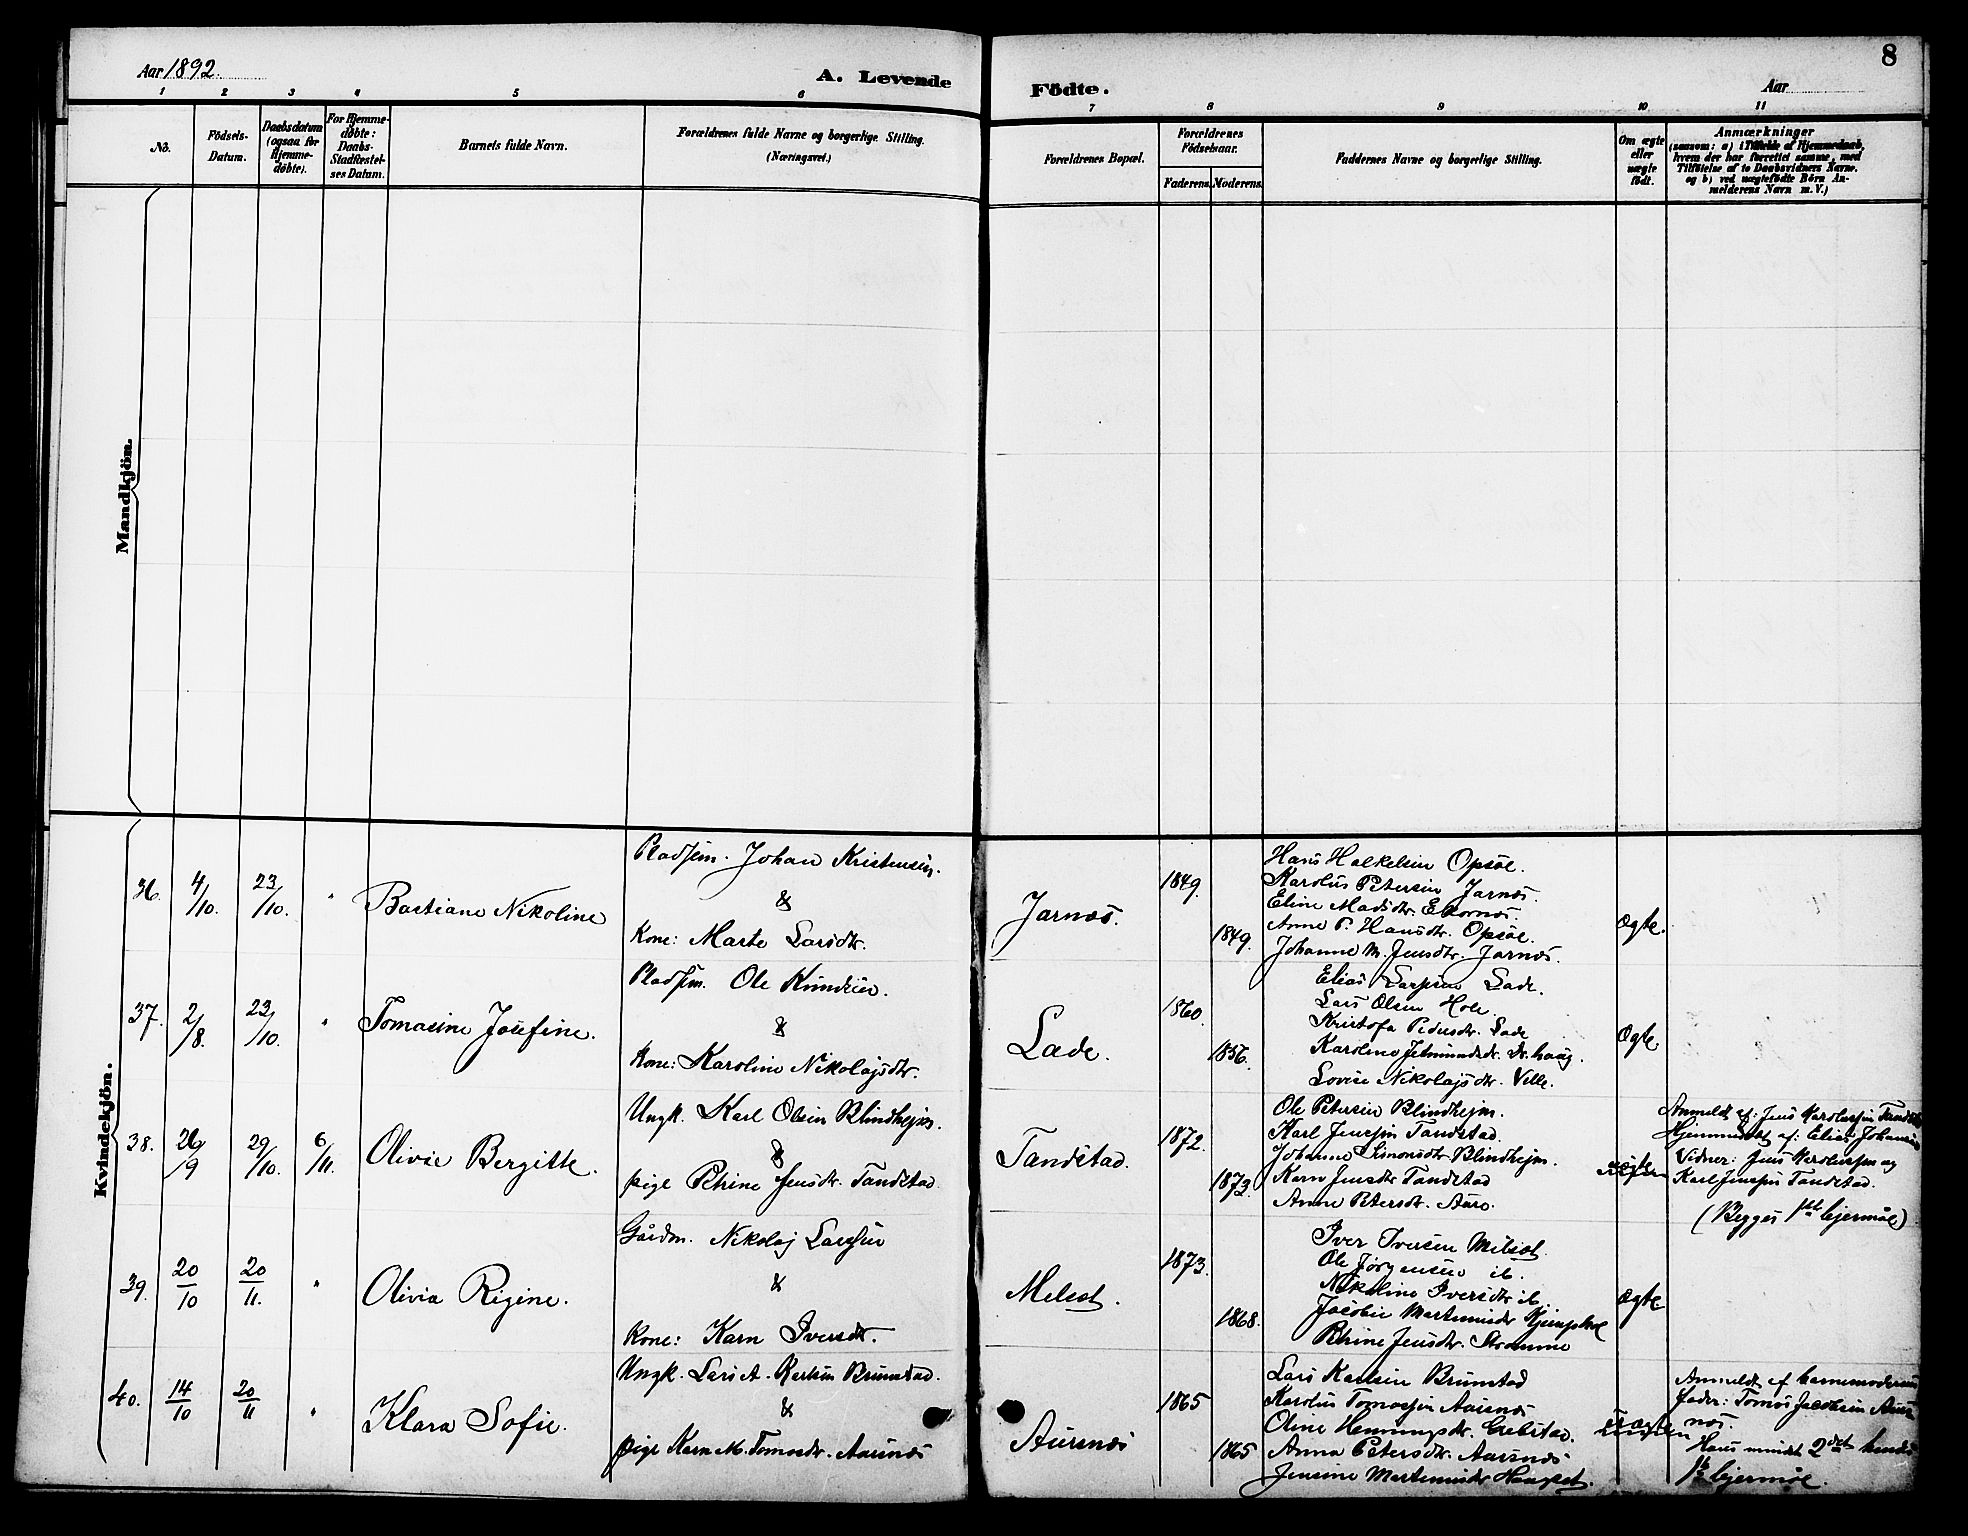 Aar 1892.
A. Levende
Födte.
Aar
8
1 2 3 4 5 6 7 8 9 10 11
No.
Födsels-
Datum.
Daabsdatum
(ogsaa for
Hjemme-
döbte).
For Hjemme-
döbte:
Daabs-
Stadfæstel-
ses Datum.
Barnets fulde Navn.
Forældrenes fulde Navne og borgerlige Stilling.
(Næringsvei.)
Forældrenes Bopæl.
Forældrenes
Födselsaar.
Faderens. Moderens.
Faddernes Navne og borgerlige Stilling.
Om ægte
eller
uægte
födt.
Anmærkninger
(saasom: a) i Tilfælde af Hjemmedaab,
hvem der har forrettet samme, med
Tilföielse af to Daabsvidners Navne,
og b) ved uægtefödte Börn An-
melderens Navn m. V.)
Mandkjön.
Kvindekjön.
36. 4/10. 23/10. "
Bastiane Nikoline
Pladsm. Johan Kristensen.
&
Kone: Marte Larsdtr.
Jarnæs.
1849.
1849.
Hans Halkelsen Opsöe.
Karolus Petersen Jarnæs.
Eline Madsdtr. Ekornæs.
Anne P. Hansdtr. Opsöe.
Johanne M. Jensdtr. Jarnæs.
Ægte.
37. 2/8. 23/10. "
Tomasine Josefine.
Pladsm. Ole Knudsen.
&
Kone: Karoline Nikolajsdtr.
Lade.
1860.
1856.
Elias Larssen Lade.
Lars Olsen Hole.
Kristofa Pedersdtr. Lade
Karoline Jetmundsdtr.
Lovise Nikolajsdtr. Velle.
Ægte.
38. 26/9 29/10. 6/11.
Olivie Bergitte.
Ungk. Karl Olsen Blindhejm.
&
pige Petrine Jensdtr. Tandstad
Tandstad.
1872.
1873.
Ole Petersen Blindhejm.
Karl Jenssen Tandstad.
Johanne Simonsdtr Blindhejm.
Karn Jensdtr Tandstad
Anne Petersdtr. Aure.
Anmeldt af: Jens Karolussen Tandstad
Hjemmedöbt af: Elias Johansen
Vidner: Jens Karolussen og
Karl Jenssen Tandstad.
(Begges 1ste lejermål)
39. 20/10 20/11. "
Olivia Regine.
Gårdm. Nikolaj Larssen
&
Kone: Karn Iversdtr.
Melsæt.
1873.
1868.
Iver Iversen Melsæt.
Ole Jörgensen ib.
Nikoline Iversdtr ib.
Jacobie Martinusdtr
Petrine Jensdtr. Stromme
Ægte
40. 14/10 20/11 "
Klara Sofie.
Ungk. Lars A. Karlsen Brunstad.
&
pige Karn M. Tomasdtr. Aursnæs
Aursnæs
1865
1865
Lars Karlsen Brunstad
Karolus Tomassen Aursnæs
Oline Henningsdtr. Grebstad.
Anna Petersdtr. Aursnæs
Jensine Martinusdtr Haugset.
Anmeldt af barnemoderens
fader: Tomas Jacobsen Aurs-
næs.
Hans mindst 2det hendes
1ste lejermål.